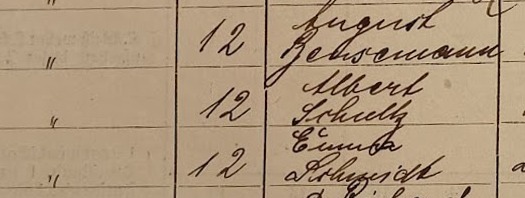 "
12 August
Bensemann
" 12 Albert
Schultz
" 12 Emma
Schmidt